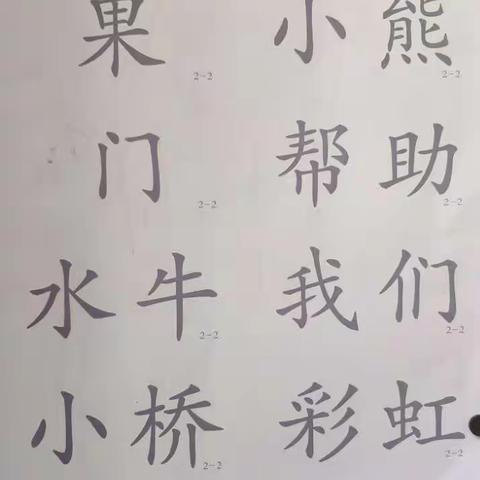 果 小熊
2-2 2-2
门 帮助
2-2 2-2
水牛 我们
2-2 2-2
小桥 彩虹
2-2 2-2